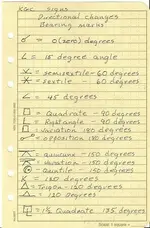 KGC Signs
Directional changes
Bearing marks
= 0 (zero) degrees
L = 15 degree angle
= semisextile - 60 degrees
= Sextile - 60 degrees
L = 45 degrees
= Quadrate - 90 degrees
= Rightangle - 90 degrees
= Variation 180 degrees
= opposition 180 degrees
= quincunx - 150 degrees
= Variation - 150 degrees
= Quatile - 150 degrees
X = 150 degrees
= Trigon - 120 degrees
= 120 degrees
= 1½ Quadrate 135 degrees